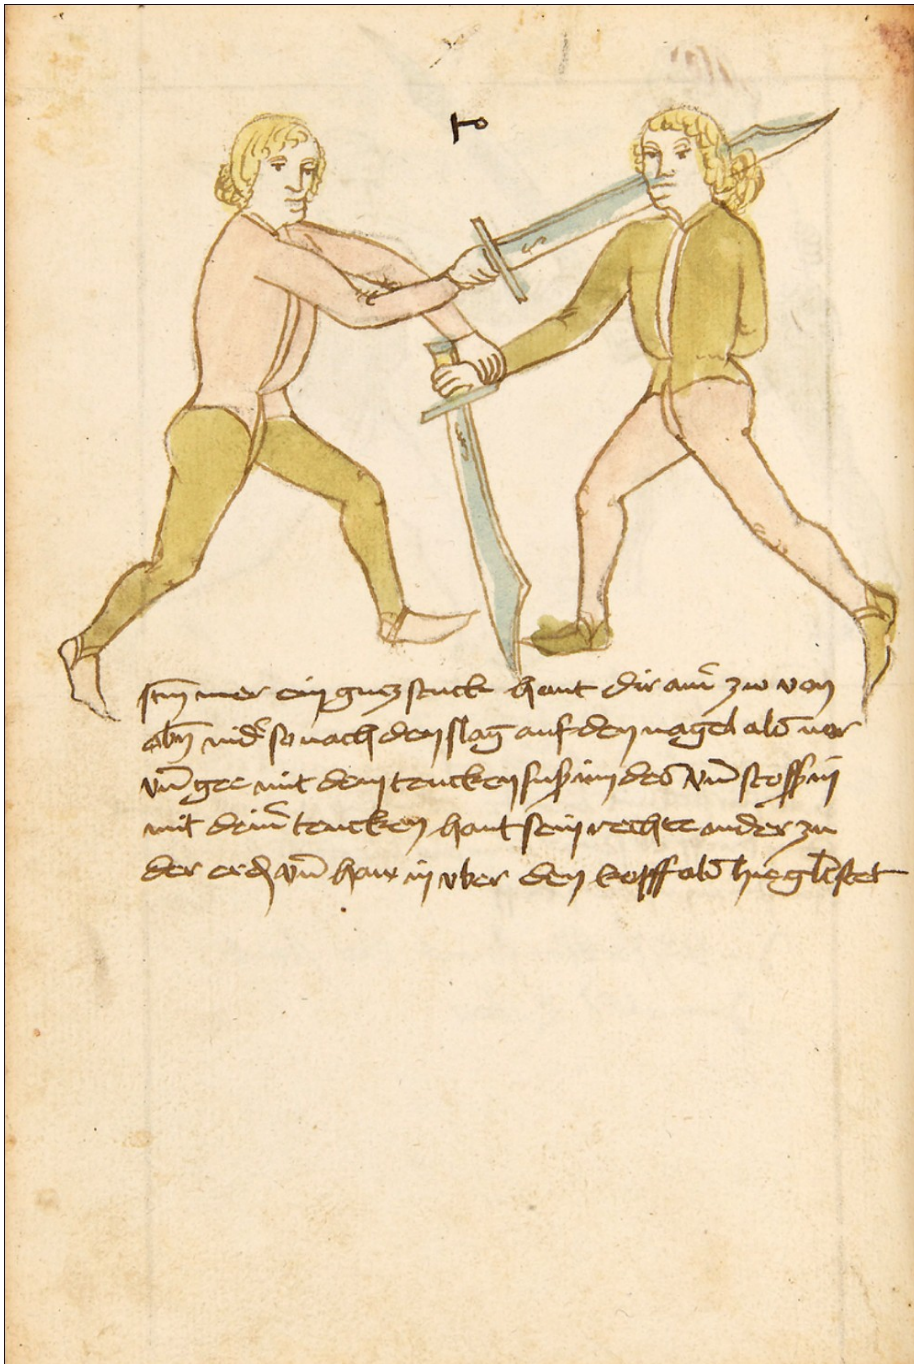 to
Itm̄ mer ein gucz stuck haut dir ainr̄ zw von
obn̄ nidr̄ so nach den slag auf den nagel als vor
vn̄ gee mit dem tencken fusß im des vn̄ stosß in
mit deinr̄ tencken hant sein rechte nider zu
der erd vn̄ haw in vber den kopff als hie gl̄ stet